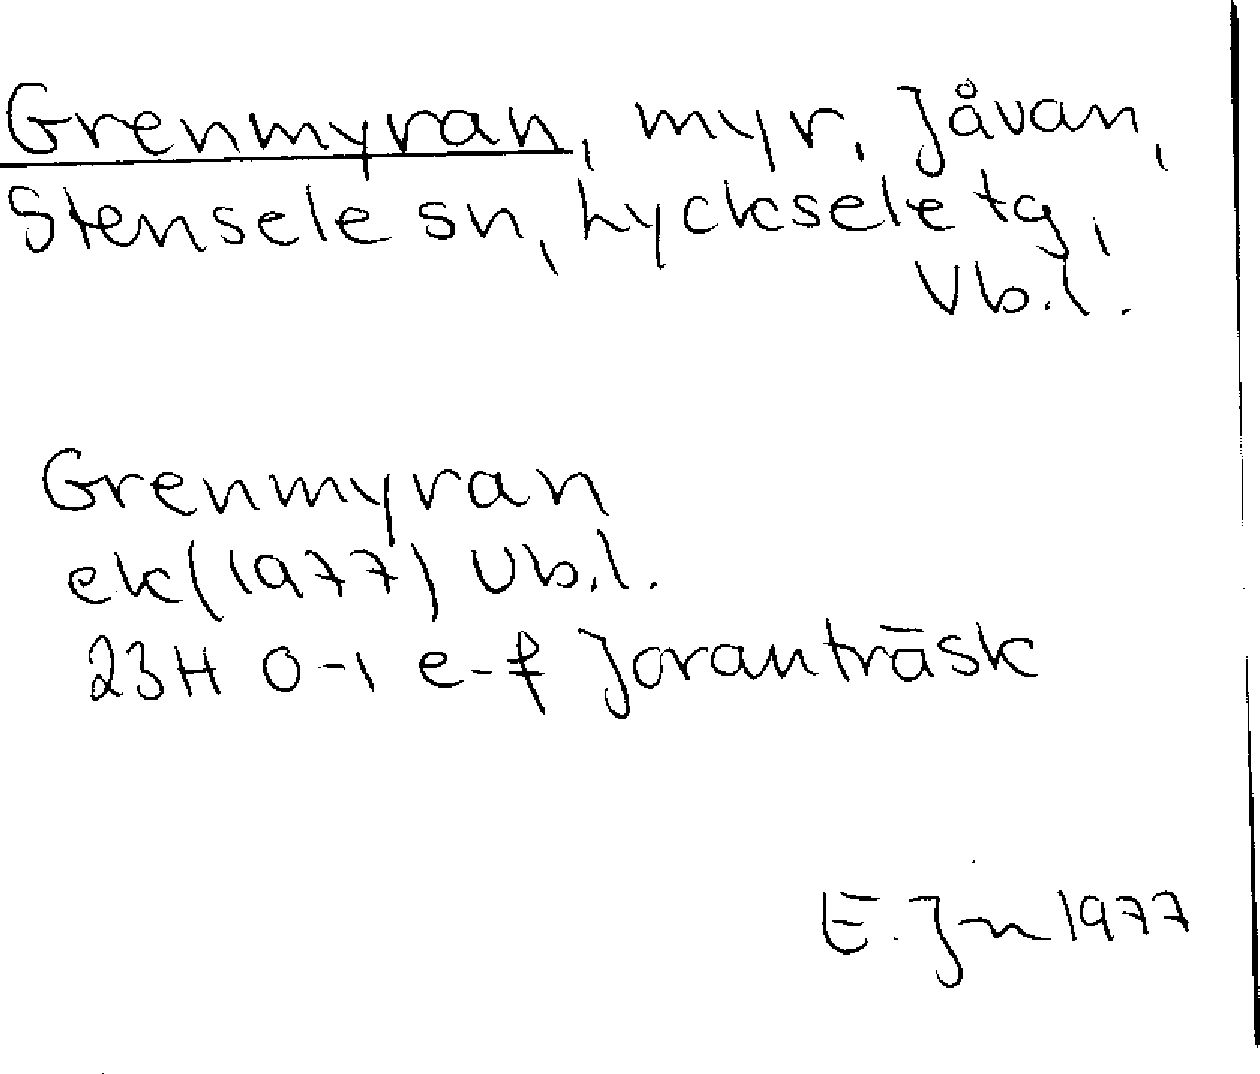 Grenmyran, myr, Jåvan,
Stensele sn, Lycksele tg,
Vb.l.
Grenmyran
ek(1977) Vb.l.
23H 0-1 e-f Joranträsk
E. Jn 1977